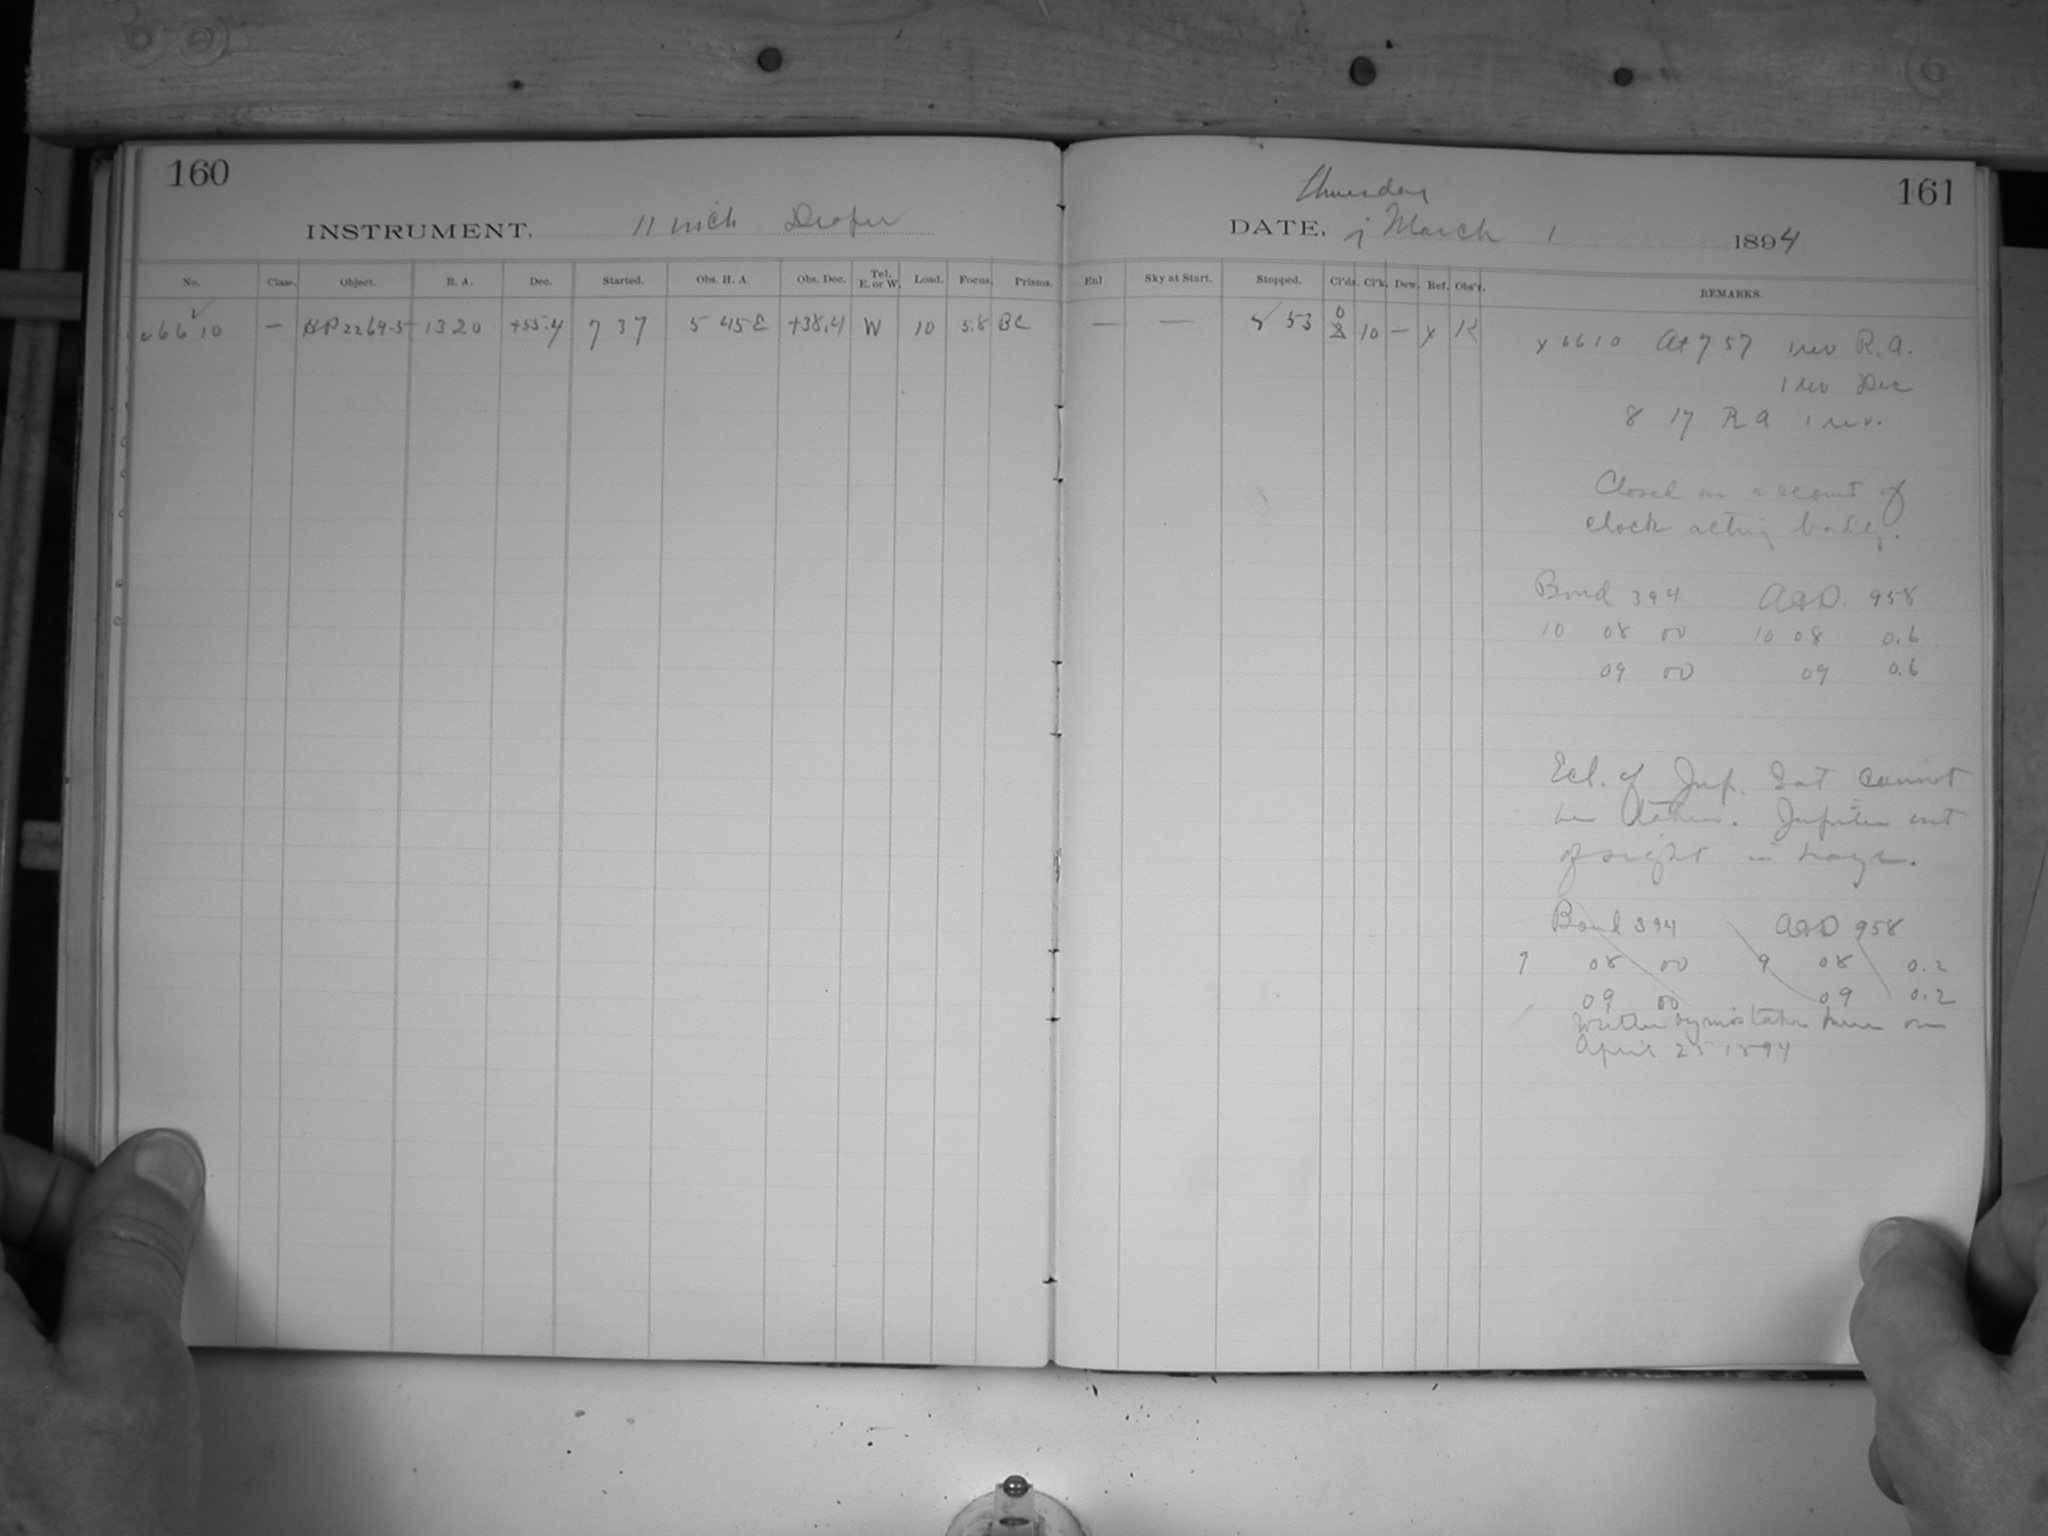 160
INSTRUMENT, 11 inch Draper
No. Class. Object. R. A. Dec. Started. Obs. H. A. Obs. Dec. Tel. E. or W. Load. Focus. Prisms.
c6610 — HP 2264-5 13 20 +55.4 7 37 5 45 E +38.4 W 10 5.8 BC
Thursday
161
DATE, March 1 1894
Enl Sky at Start. Stopped. Cl'ds. Cl'k. Dew. Ref. Obs'r. REMARKS.
— — 8 53 0 10 — x K x 6610 At 7 57 1 rev R.A.
1 rev Dec
8 17 R A 1 rev.
Closed on account of
clock acting badly.
Bond 394 A&D. 958
10 08 00 10 08 0.6
09 00 09 0.6
Ecl. of Jup. Sat cannot
be taken. Jupiter out
of sight in haze.
Bond 394 A&D 958
9 08 00 9 08 0.2
09 00 09 0.2
Written by mistake here on
April 25 1894